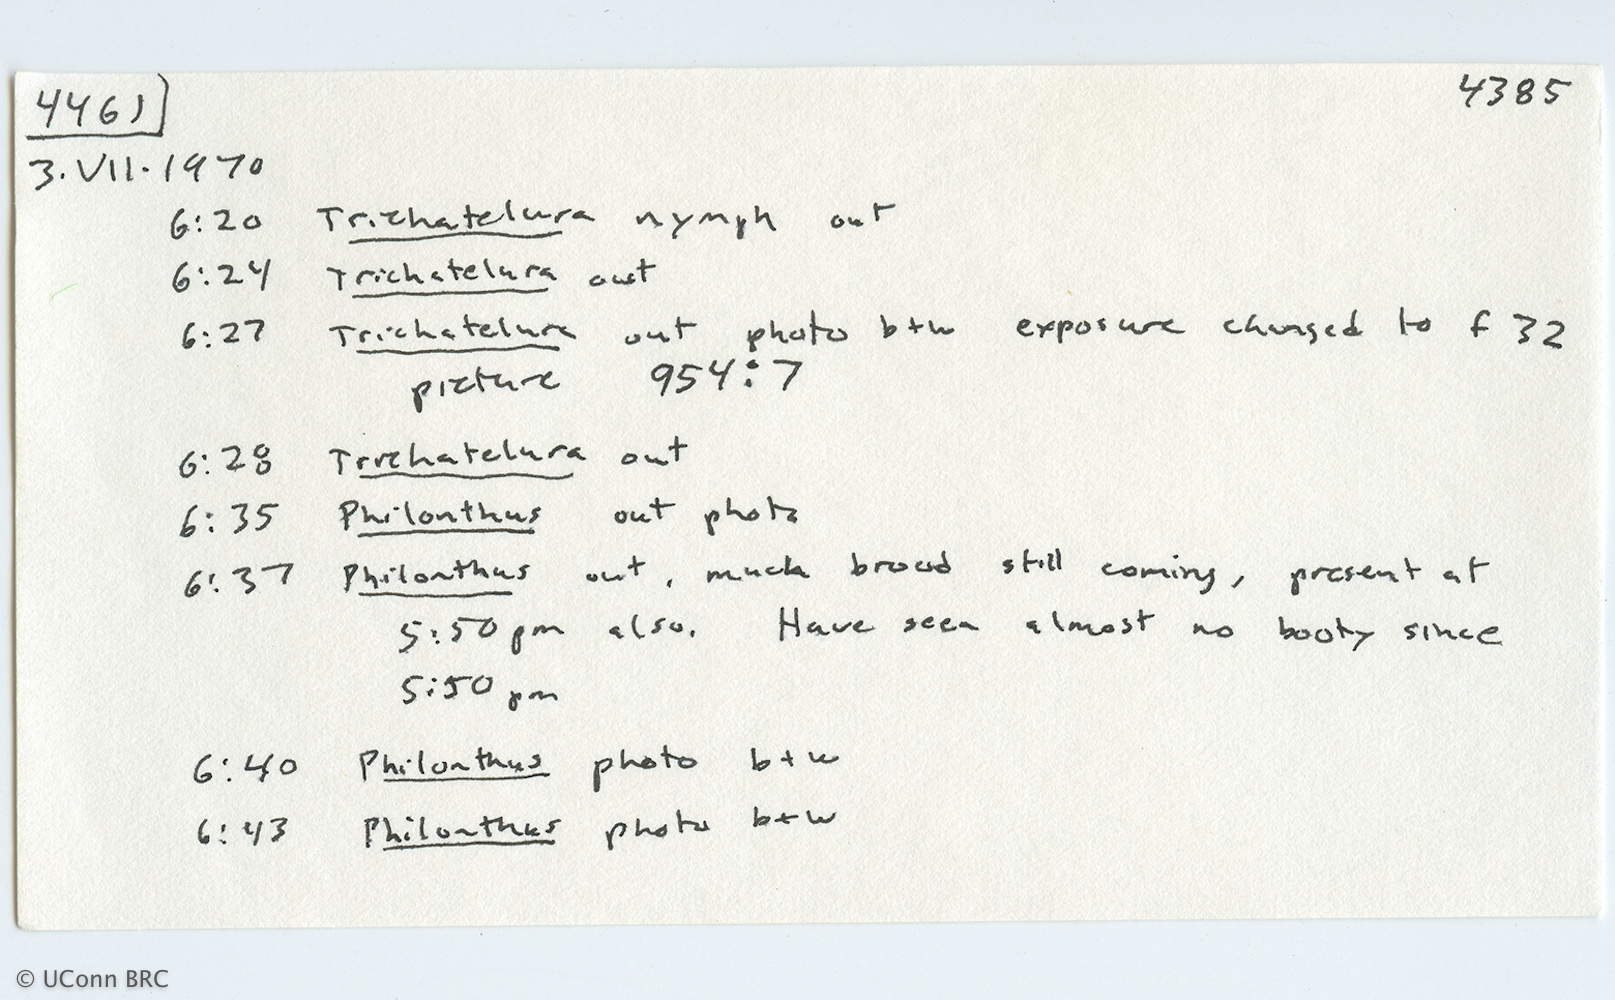 4461
4385
3.VII.1970
6:20 Trichatelura nymph out
6:24 Trichatelura out
6:27 Trichatelura out photo b+w exposure changed to f 32
picture 954:7
6:28 Trichatelura out
6:35 Philonthus out photo
6:37 Philonthus out, much brood still coming, present at
5:50 pm also. Have seen almost no booty since
5:50 pm
6:40 Philonthus photo b+w
6:43 Philonthus photo b+w
© UConn BRC